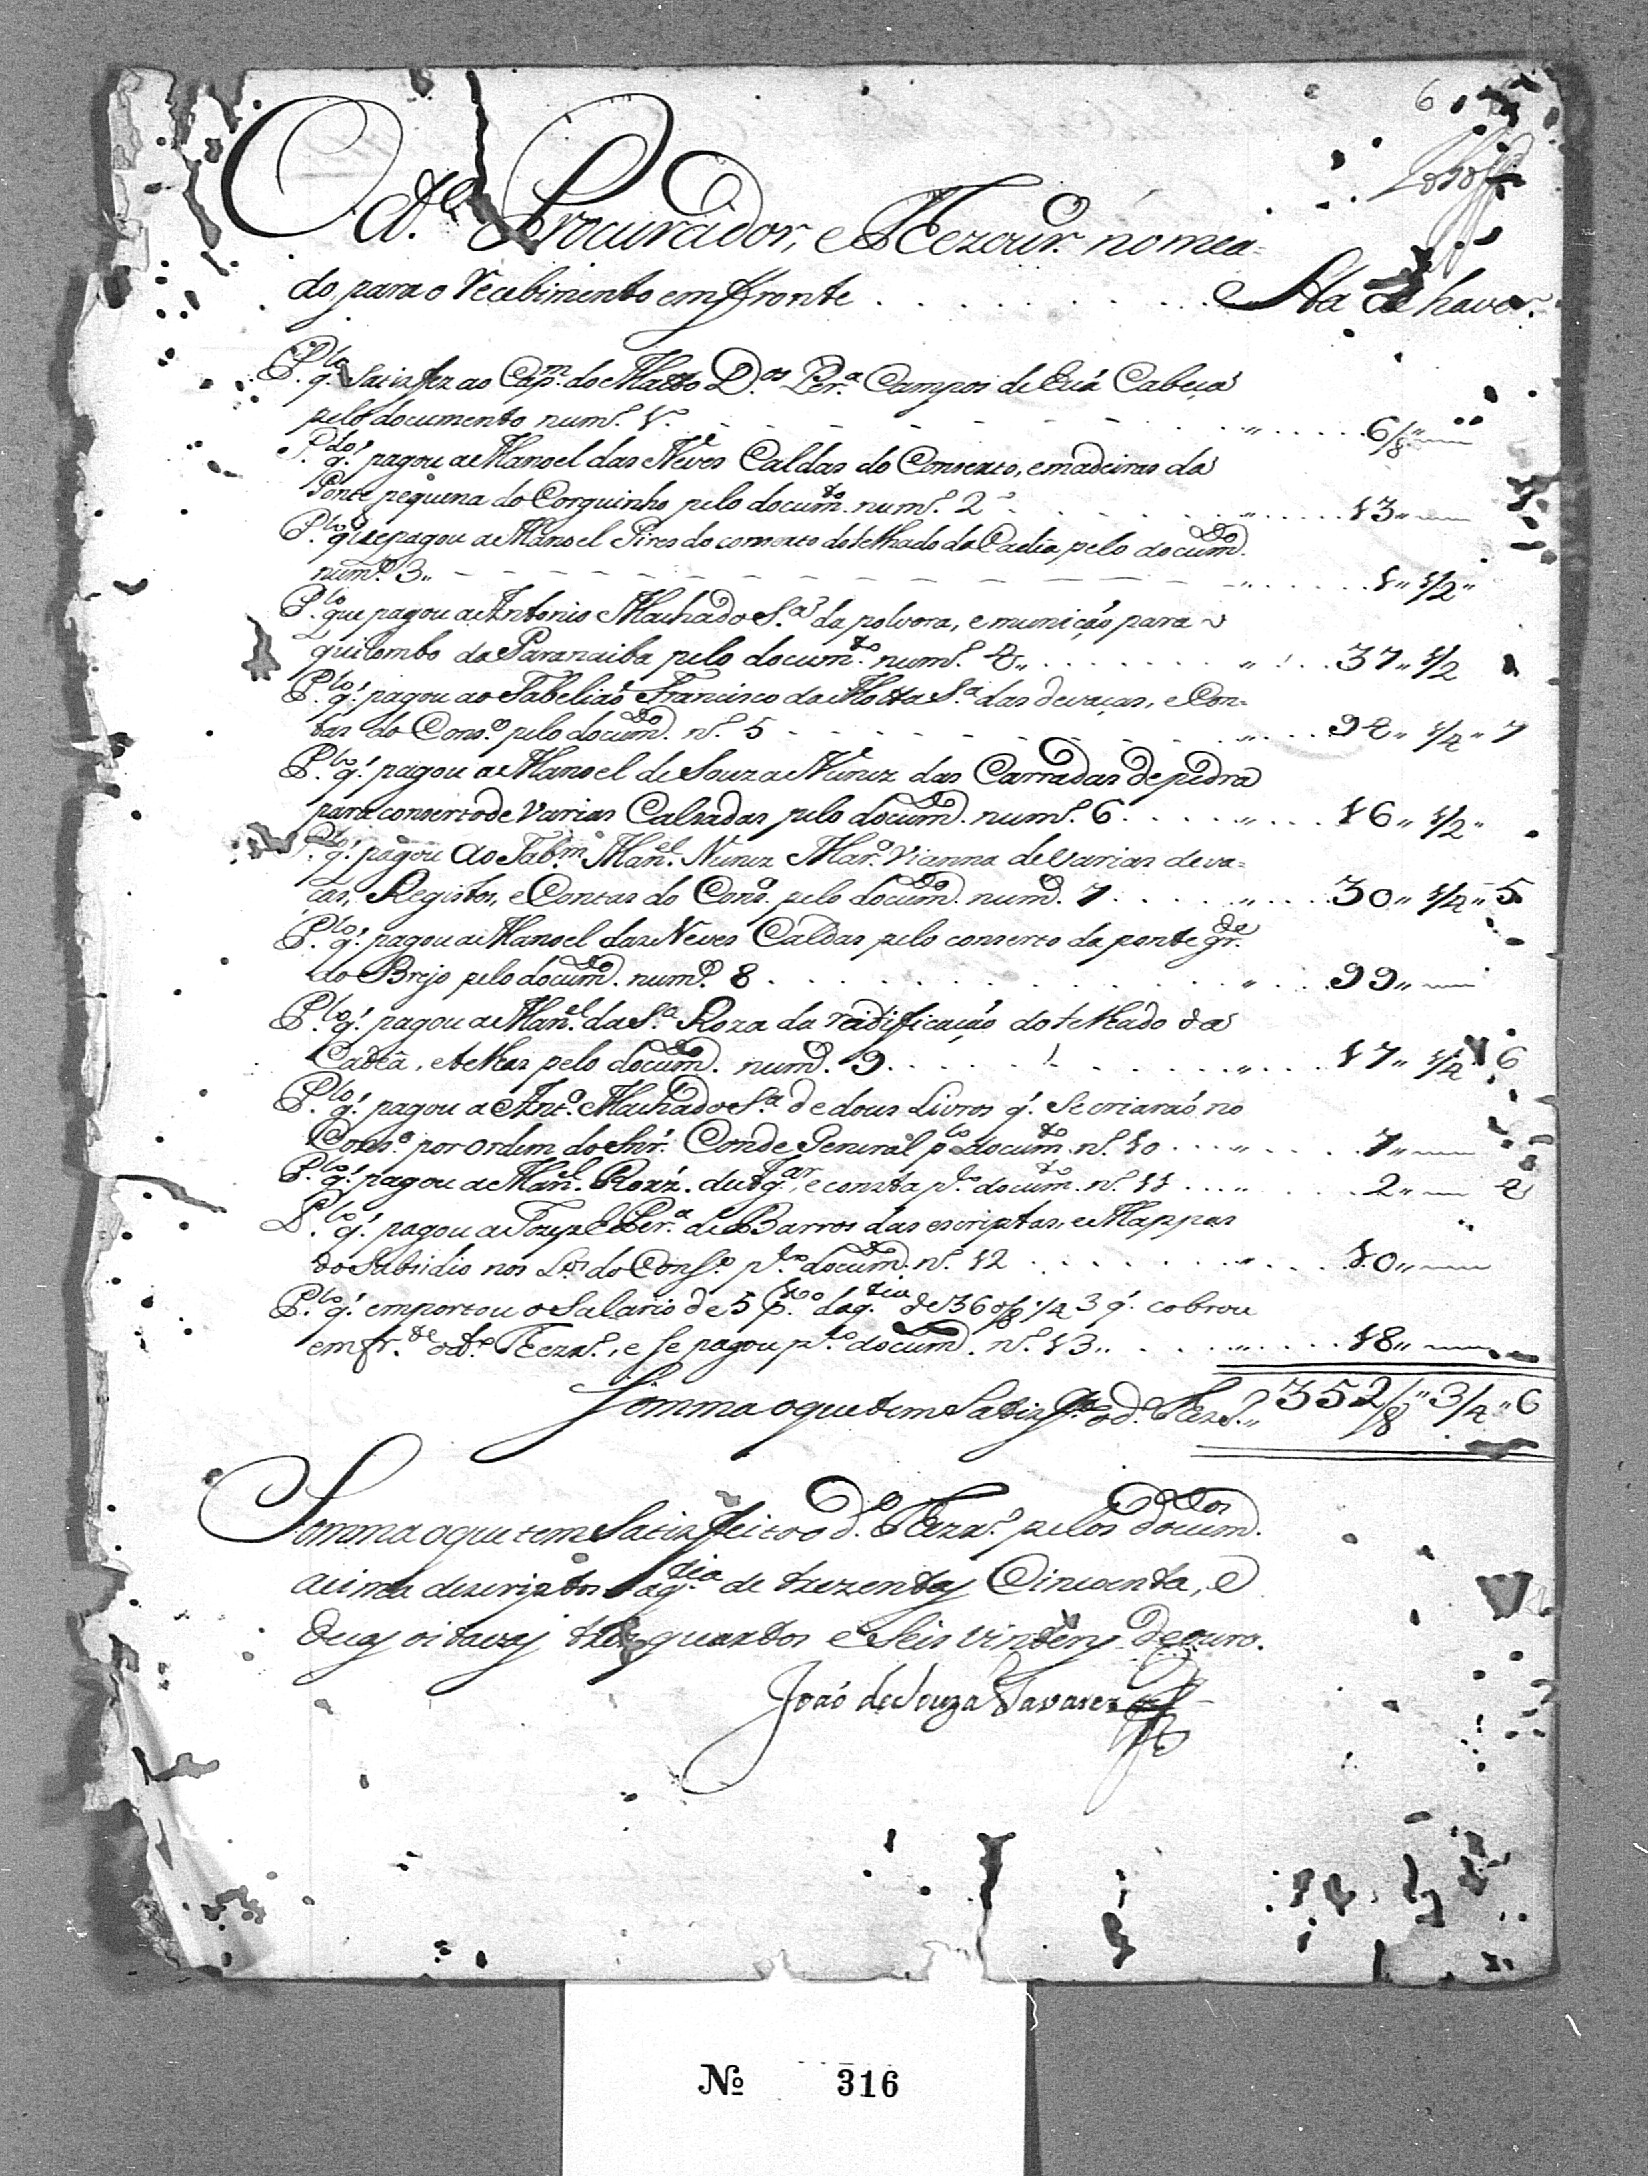 6
O d.º Procurador, e Tezour.º nomea=
do para o recebimento emfronte . . . . . . . . . . Ha de haver.
P.lo q.' Satisfez ao Cap.m do Matto D.os Per.ª Campos de hũa Cabeça
pelo documento num.º 1. - - - - - - - " . . . . . 6/8 "
P.lo q.' pagou a Manoel das Neves Caldas do Conserto, e madeiras da
Ponte pequena do Corguinho pelo docum.to num.º 2 . . . . " . . . . . 13 "
P.lo que pagou a Manoel Pires do conserto do telhado da Cadêa pelo docum.to
num.º 3 " - - - - - - - - - - - " . . . . . 1 " 1/2 "
P.lo que pagou a Antonio Machado S.ª da polvora, e munição para o
quilombo da Paranaiba pelo docum.to num.º 4 " . . . . . . " . . . 37 " 1/2
P.lo q.' pagou ao Tabeliaõ Francisco da Motta S.ª das devaças, e Con=
tas do Cons.º pelo docum.to n.º 5 - - - - - - - " . . . 92 " 1/4 " 7
P.lo q.' pagou a Manoel de Souza Nunez das Carradas de pedra
para conserto de varias Calsadas pelo docum.to num.º 6 . . . . . " . . . 16 " 1/2 "
P.lo q.' pagou ao Tab.m Man.el Nunez Mar.º Vianna de varias deva=
ças, Registos, e Contas do Cons.º pelo docum.to num.º 7 . . . . . " . . . 30 " 1/4 " 5
P.lo q.' pagou a Manoel das Neves Caldas pelo conserto da ponte gr.de
do Brejo pelo docum.to num.º 8 . . . . . . . . . . " . . . 99 "
P.lo q.' pagou a Man.el da S.ª Roza da reidificaçaõ do telhado da
Cadêa, e telhas pelo docum.to num.º 9 . . . . . . . . " . . . 17 " 1/4 " 6
P.lo q.' pagou a Ant.º Machado S.ª de dous Livros q.' se criaraõ no
Cons.º por ordem do Snr.' Conde General p.lo docum.to n.º 10 . . . . " . . . . . 7 "
P.lo q.' pagou a Man.el Roiz.' e consta p.lo docum.to n.º 11 . . . . " . . . . . 2 " 4
P.lo q.' pagou a Jozeph Per.ª de Barros das escriptas, e Mappas
do Subsidio nos L.os do Cons.º p.lo docum.to n.º 12 . . . . . . . " . . . . 10 "
P.lo q.' emportou o Salario de 5 p.r 0/0 da q.tia de 360/8 1/4 3 q.' cobrou
emfr.te o d.º Tezr.º, e se pagou p.lo docum.to n.º 13 " . . . . . " . . . . 18 "
Somma o que tem Satisf.to o d.º Tezr.º " 352/8 " 3/4 " 6
Somma o que tem Satisfeito o d.º Tezr.º pelos docum.tos
acima descriptos a q.tia de trezentas Cincoenta, e
duas oitavas tres quartos e Seis vintens de ouro.
Joaõ de Souza Tavarez
Nº 316